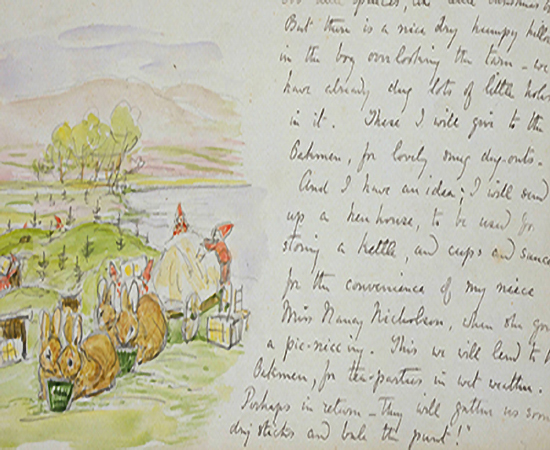 But there is a nice dry humpy
in the bog overlooking the tarn - we
have already dug lots of little
in it. These I will give to the
Oakmen, for lovely snug dug-outs.
And I have an idea; I will send
up a hen house, to be used for
storing a kettle, and cups and
for the convenience of my niece
Miss Nancy Nicholson, when she
a pic-nic-ing. This we will lend to
Oakmen, for tea-parties in wet weather.
Perhaps in return - They will gather us
dry sticks and bale the punt!"